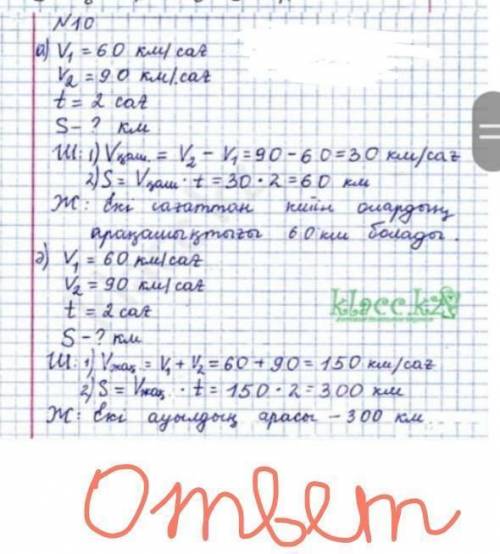 N10
а) V₁ = 60 км/сағ
V₂ = 90 км/сағ
t = 2 сағ
S - ? км
Ш: 1) Vқаш. = V₂ - V₁ = 90 - 60 = 30 км/сағ
2) S = Vқаш · t = 30 · 2 = 60 км
Ж: Екі сағаттан кейін олардың
арақашықтығы 60 км болады.
ә) V₁ = 60 км/сағ
V₂ = 90 км/сағ
klacc.kz
t = 2 сағ
S - ? км
Ш: 1) Vжақ. = V₁ + V₂ = 60 + 90 = 150 км/сағ
2) S = Vжақ. · t = 150 · 2 = 300 км
Ж: Екі ауылдың арасы - 300 км.
Ответ